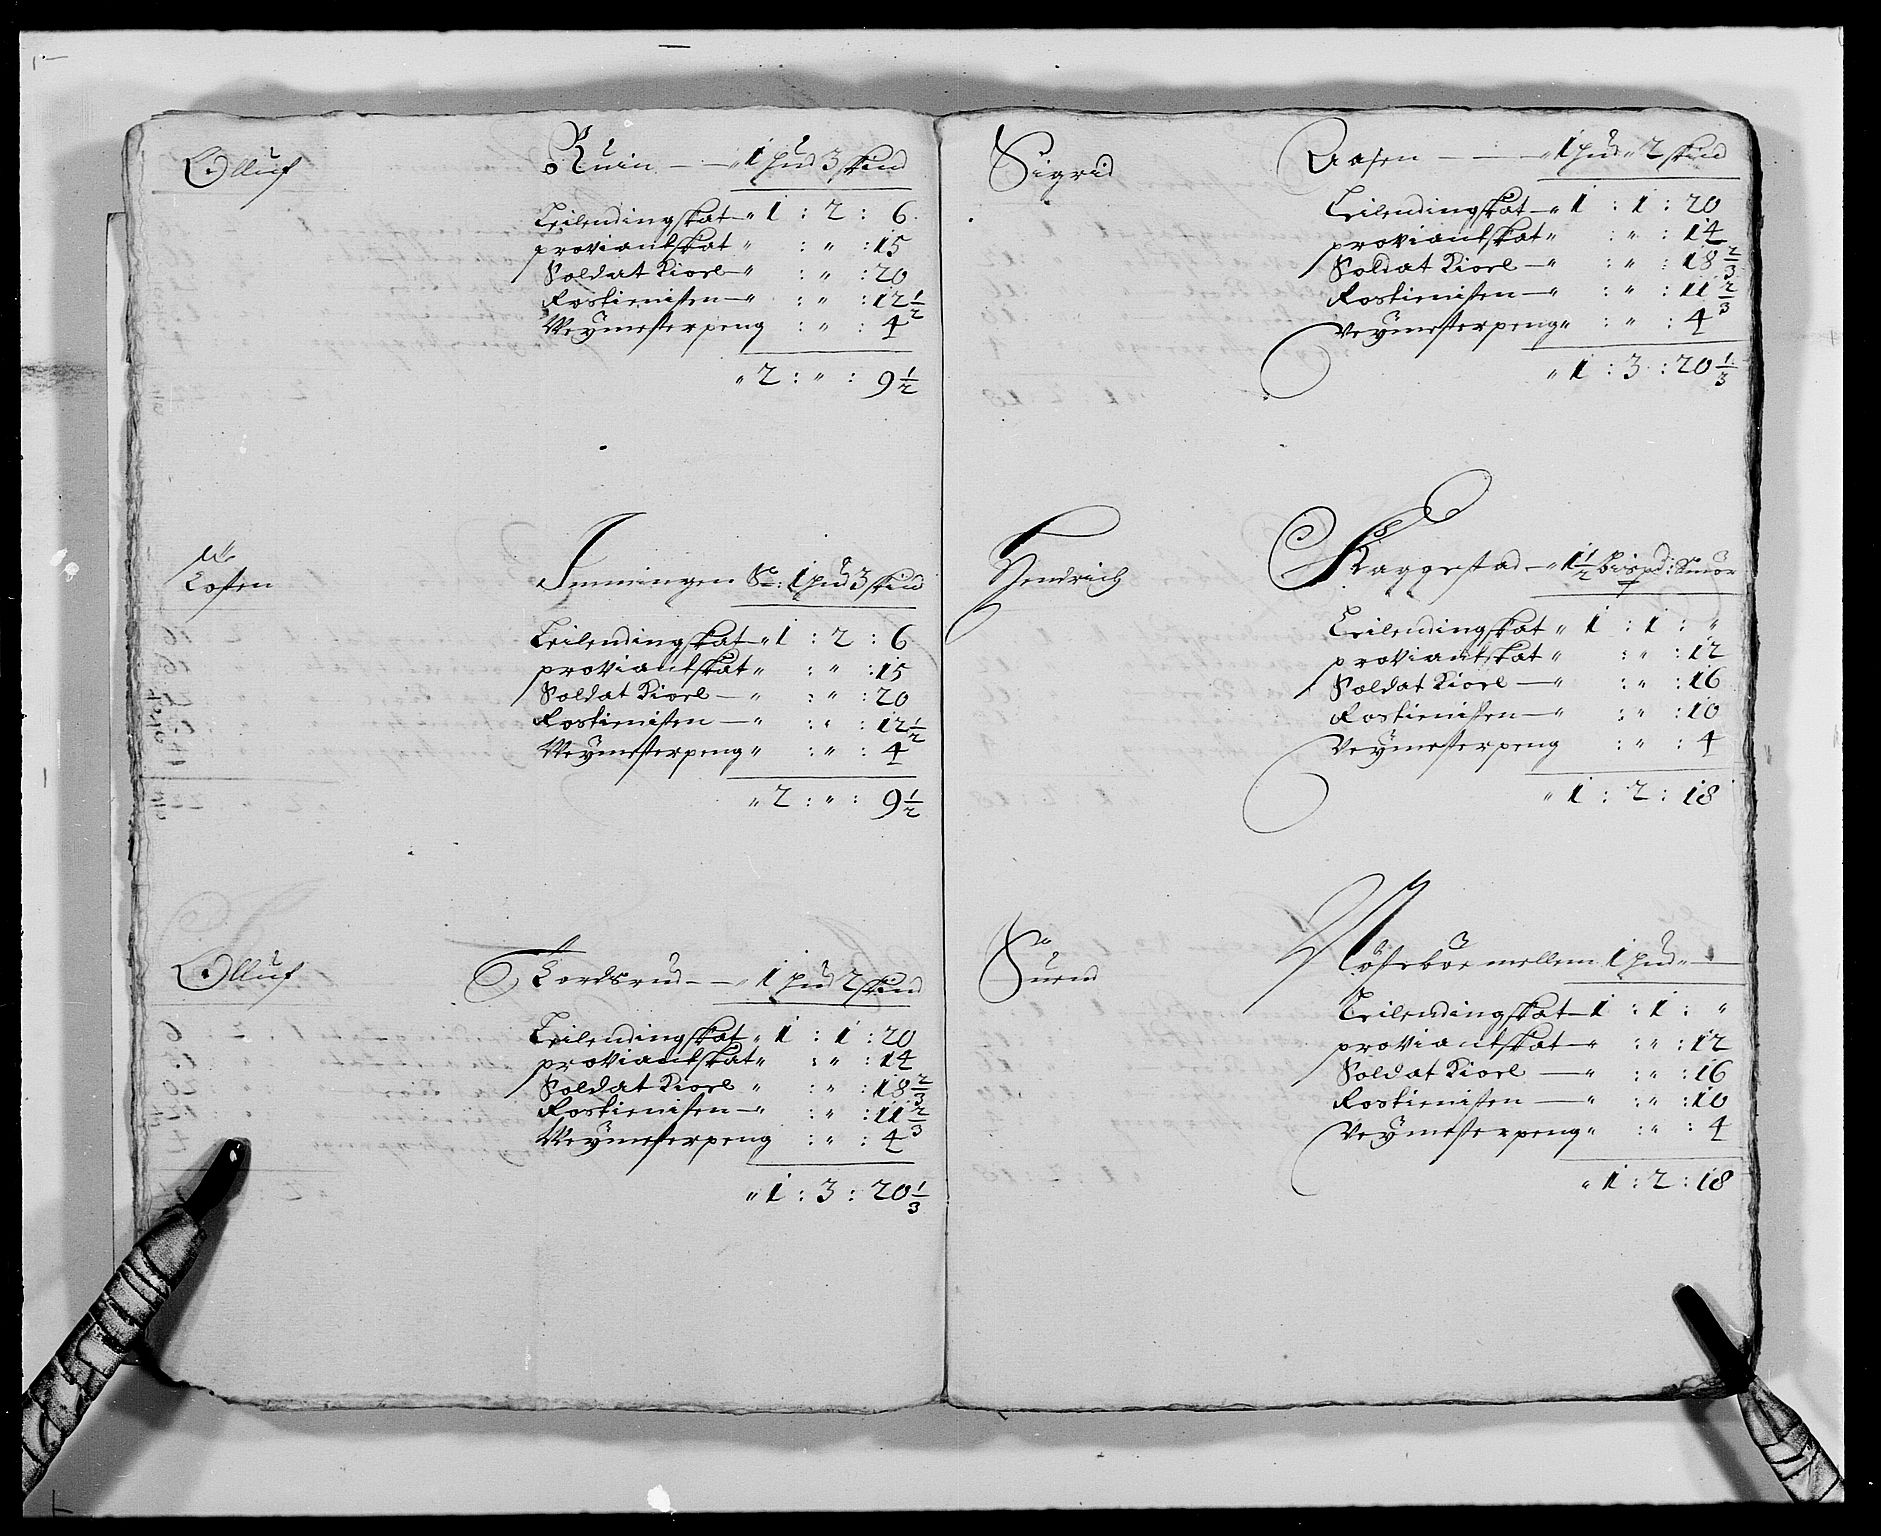 Olluf Ruin — „ 1 pud 3 skind
Leilendingskat — „ 1 : 2 : 6
proviantskat „ : „ : 15
Soldat Kiorl — „ : „ : 20
Rostienisten — „ : „ : 12 1/2
Weÿmesterpeng : „ : 4
„ 2 : „ : 9 1/2
Losten Jmmingen 1 pud 3 skind
Leilendingskat — „ 1 : 2 : 6
proviantskat „ : „ : 15
Soldat Kiorl — „ : „ : 20
Rostienisten — „ : „ : 12 1/2
Weÿmesterpeng „ : „ : 4
„ 2 : „ : 9 1/2
Olluf Tordsrud — „ 1 pud 2 skind
Leilendingskat „ 1 : 1 : 20
proviantskat „ : „ : 14
Soldat Kiorl „ : „ : 18 2/3
Rostienisten — „ : „ : 11 2/3
Weÿmesterpeng : „ : 4
„ 1 : 3 : 20 1/3
Sigrid Aasen — „ 1 pud „ 2 skind
Leilendingskat — „ 1 : 1 : 20
proviantskat „ : „ : 14
Soldat Kiorl — „ : „ : 18 2/3
Rostienisten — „ : „ : 11 2/3
Veÿmesterpeng „ : „ : 4
„ 1 : 3 : 20 1/3
Hendrich Skaggestad — „ 1 1/2 bispd : Smör
Leilendingskat „ 1 : 1 : „
proviantskat „ : „ : 12
Soldat Kiorl — „ : „ : 16
Rostienisten — „ : „ : 10
Veÿmesterpeng : „ : 4
„ 1 : 2 : 18
Suend Nösteböe mellem 1 pud „ —
Leilendingskat — 1 : 1 : „
proviantskat — „ : „ : 12
Soldat Kiorl — „ : „ : 16
Rostienisten — „ : „ : 10
Veÿmesterpeng „ : „ : 4
„ 1 : 2 : 18